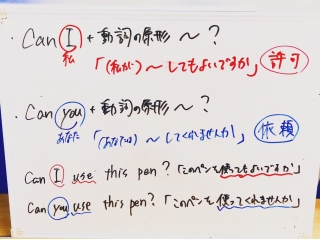 ・Can I + 動詞の原形 ～?
私
「(私が) ～してもよいですか」 許可
・Can you + 動詞の原形 ～?
あなた
「(あなたは) ～してくれませんか」 依頼
Can I use this pen? 「このペンを使ってもよいですか」
Can you use this pen? 「このペンを使ってくれませんか」